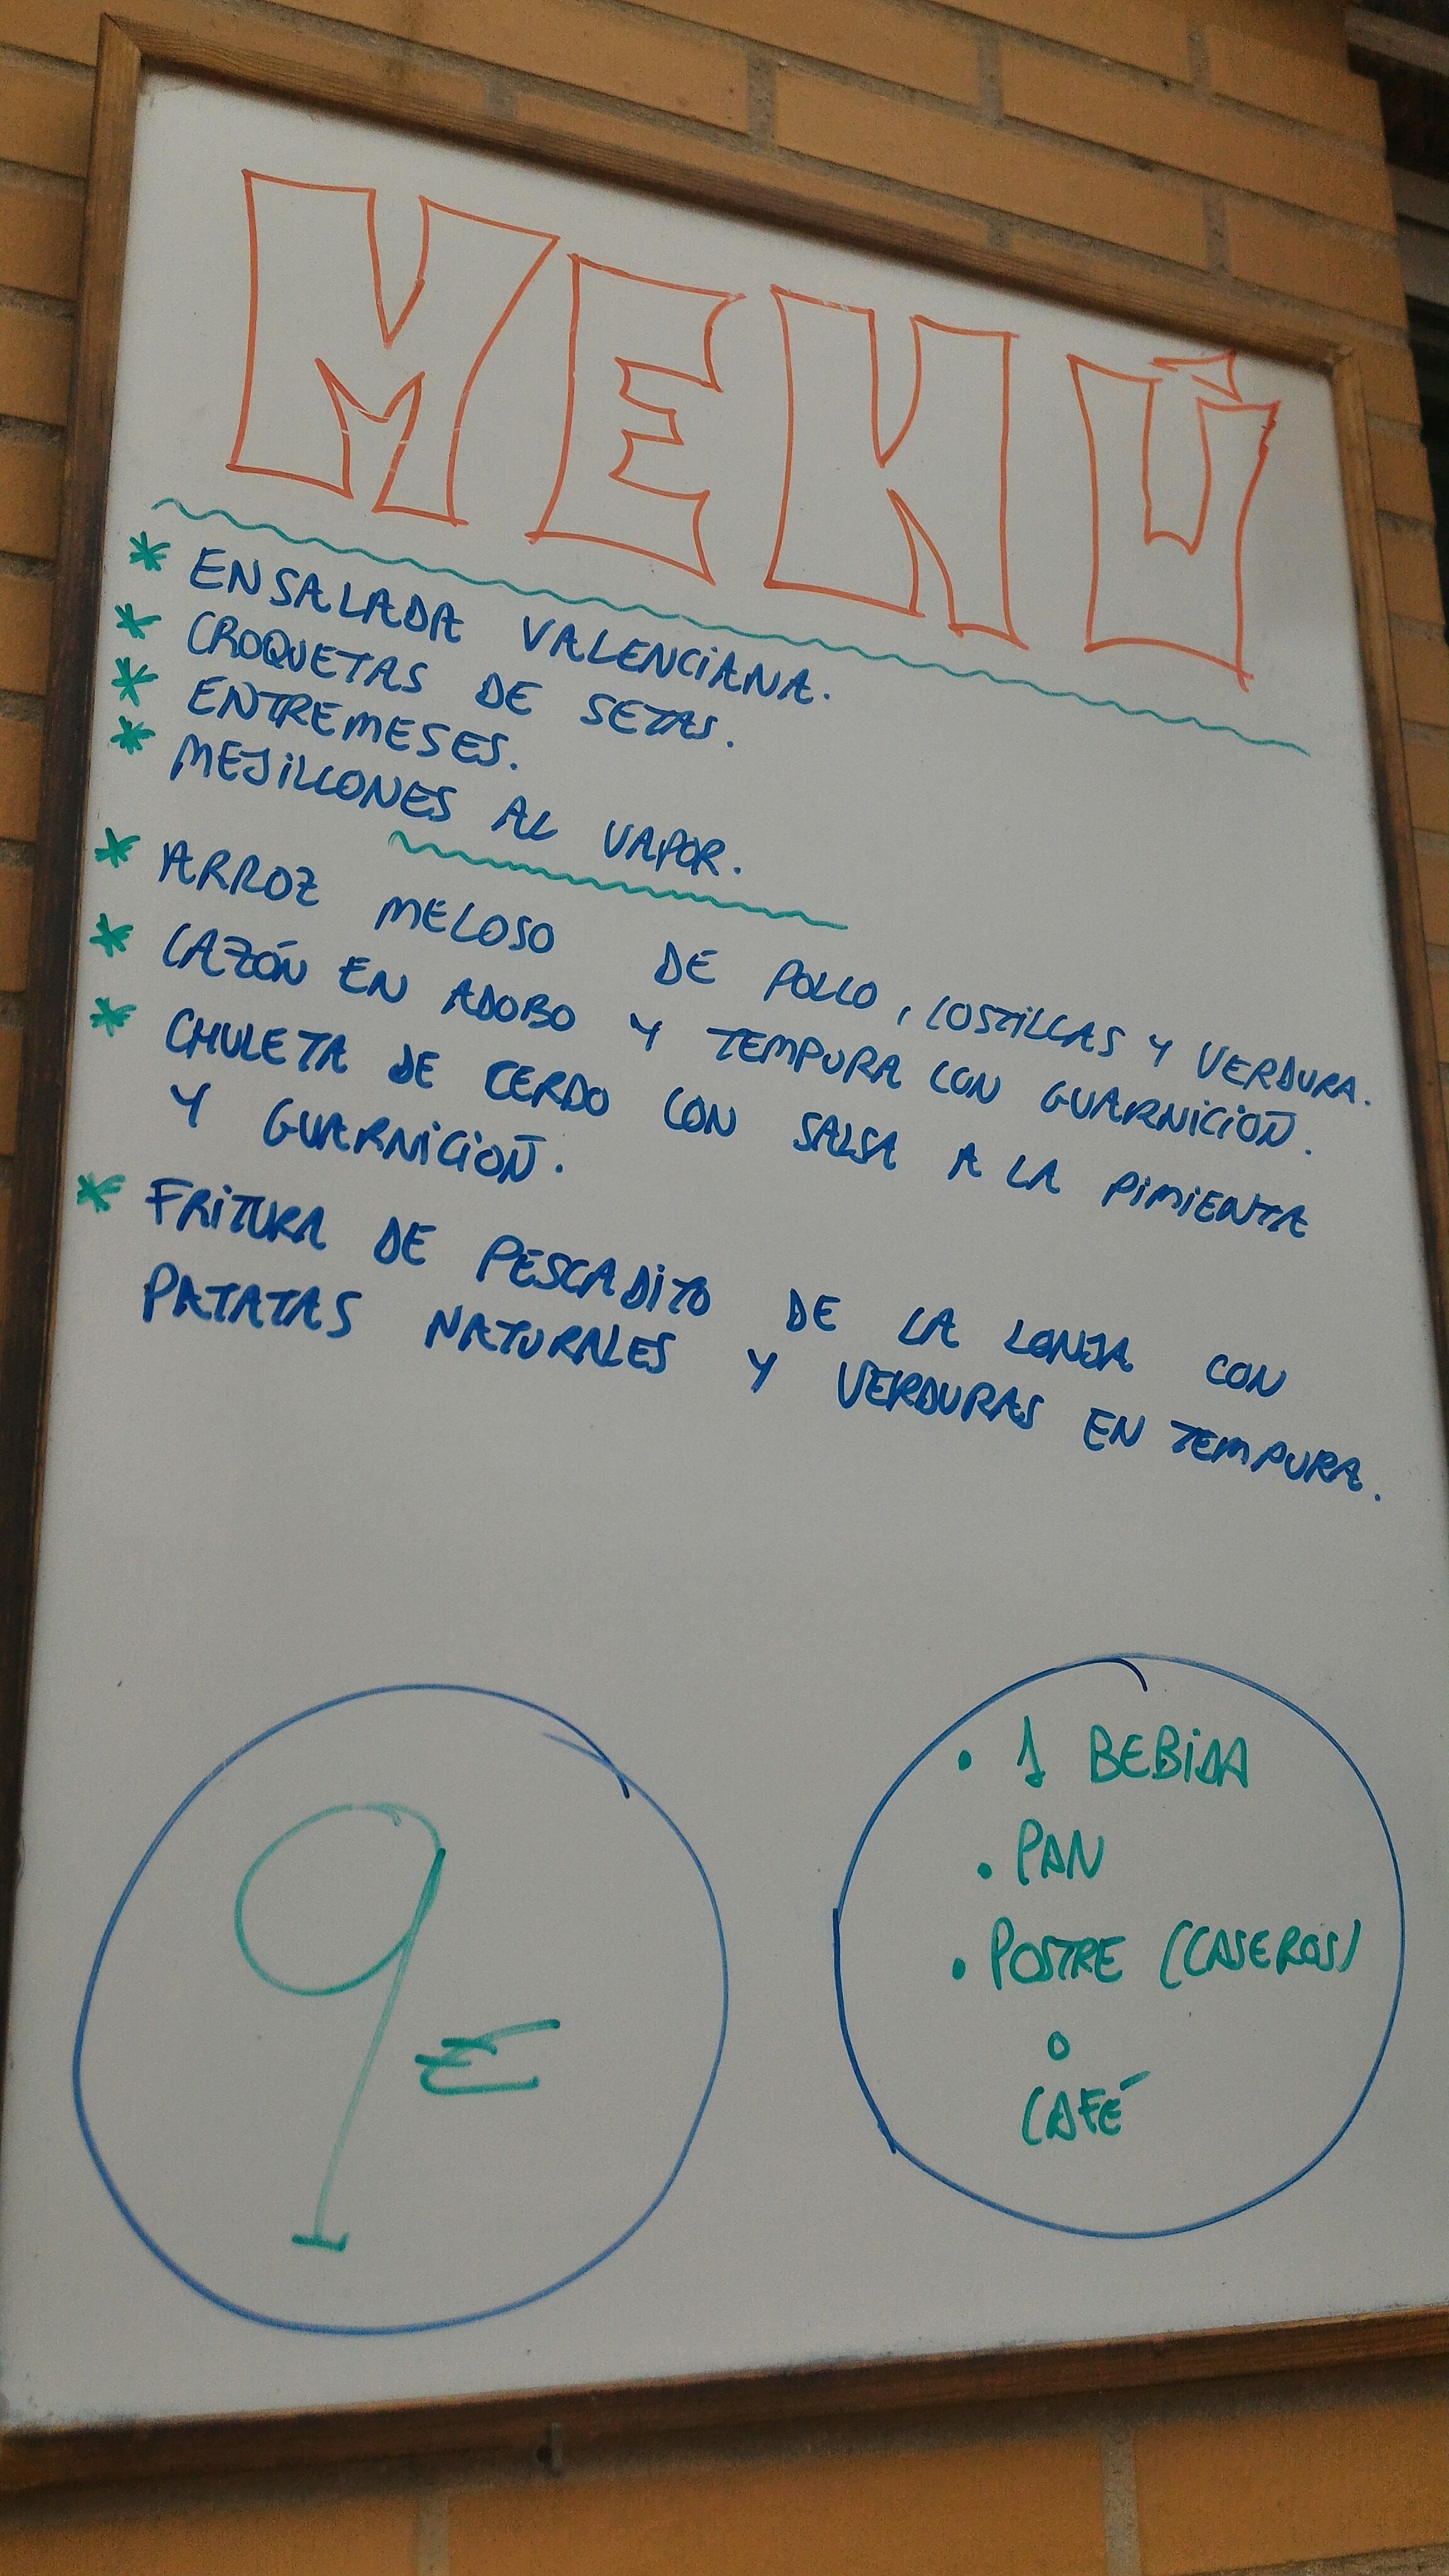 MENÚ
* ENSALADA VALENCIANA.
* CROQUETAS DE SETAS.
* ENTREMESES.
* MEJILLONES AL VAPOR.
* ARROZ MELOSO DE POLLO, COSTILLAS Y VERDURA.
* CAZÓN EN ADOBO Y TEMPURA CON GUARNICIÓN.
* CHULETA DE CERDO CON SALSA A LA PIMIENTA
Y GUARNICIÓN.
* FRITURA DE PESCADITO DE LA LONJA CON
PATATAS NATURALES Y VERDURAS EN TEMPURA.
9 €
• 1 BEBIDA
• PAN
• POSTRE (CASEROS)
o
CAFÉ